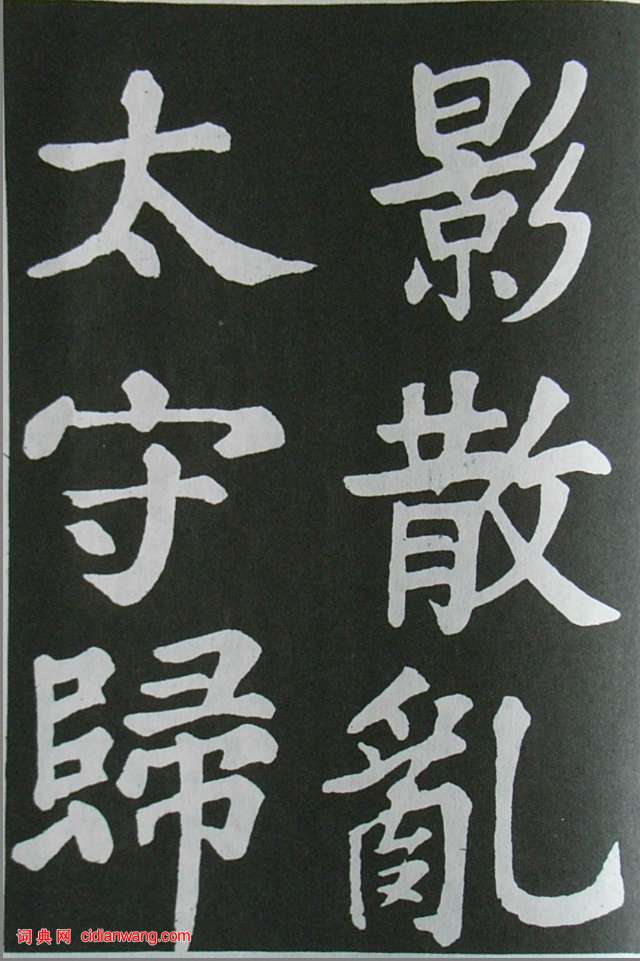 影散亂
太守歸
词典网 cidianwang.com